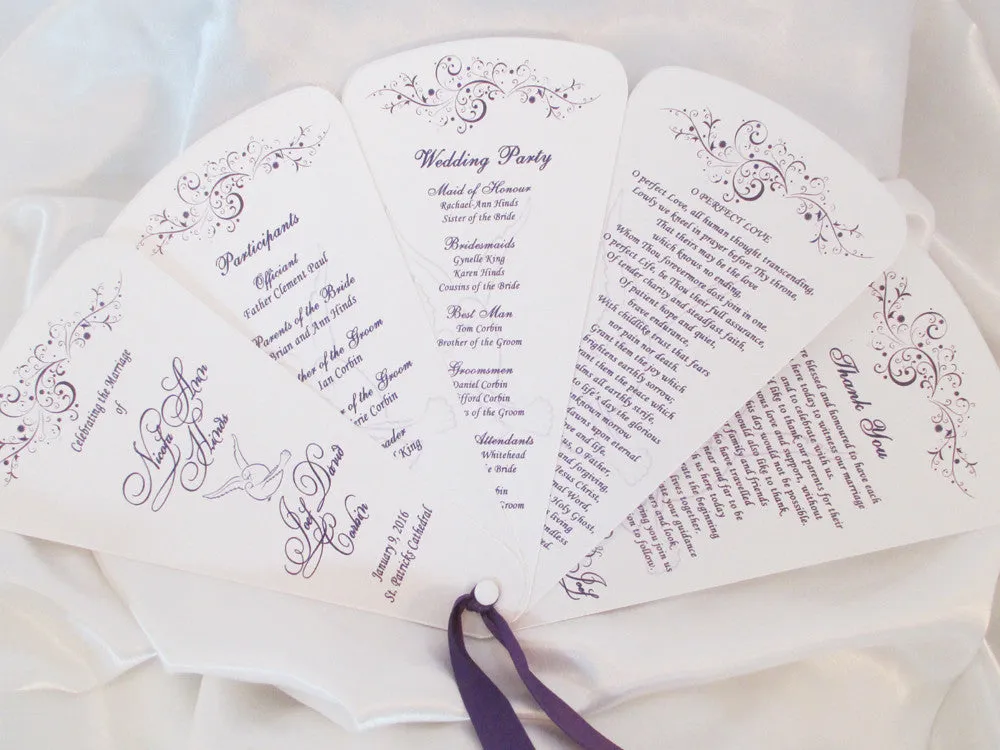 Celebrating the Marriage
of
Nicola Ann
Hinds
Joel David
Corbin
January 9, 2016
St. Patricks Cathedral
Participants
Officiant
Father Clement Paul
Parents of the Bride
Brian and Ann Hinds
her of the Groom
Ian Corbin
r of the Groom
eric Corbin
ader
King
Wedding Party
Maid of Honour
Rachael-Ann Hinds
Sister of the Bride
Bridesmaids
Gynelle King
Karen Hinds
Cousins of the Bride
Best Man
Tom Corbin
Brother of the Groom
Groomsmen
Daniel Corbin
fford Corbin
s of the Groom
Attendants
Whitehead
e Bride
bin
room
O PERFECT LOVE
O perfect Love, all human thought transcending,
Lowly we kneel in prayer before Thy throne,
That theirs may be the love
which knows no ending,
Whom Thou forevermore dost join in one.
O perfect Life, be Thou their full assurance,
Of tender charity and steadfast faith,
Of patient hope and quiet,
brave endurance,
With childlike trust that fears
nor pain nor death.
Grant them the joy which
brightens earthly sorrow;
rant them the peace which
alms all earthly strife,
to life's day the glorious
unknown morrow
dawns upon eternal
ve and life.
us, O Father,
and forgiving,
Jesus Christ,
nal Word,
Holy Ghost,
living
endless
ed.
Thank You
e blessed and honoured to have each
here today to witness our marriage
and to celebrate with us.
like to thank our parents for their
love and support, without
this day would not be possible.
would also like to thank
family and friends
o have travelled
near and far to be
us here today
ate the beginning
lives together.
your guidance
rs and look
ng you join us
n to follow.
Joel